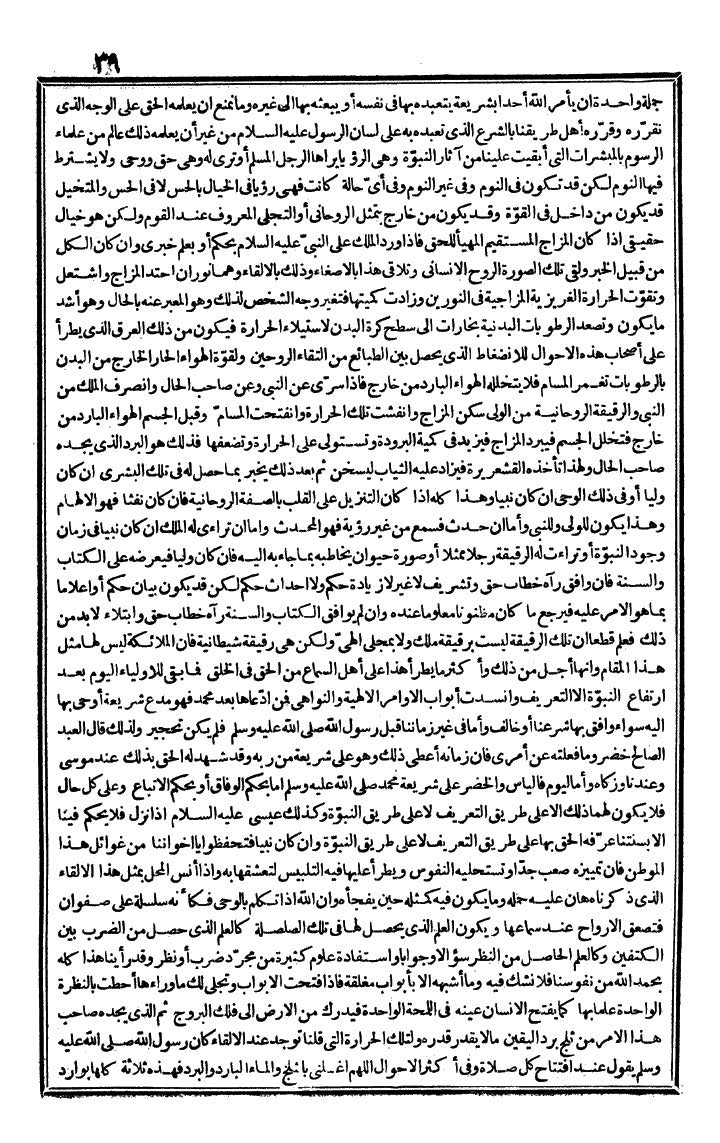 ٣٩
جملة واحدة ان يأمر الله أحدا بشريعة يتعبده بها فى نفسه أو يبعثه بها الى غيره وما نمنع ان يعلمه الحق على الوجه الذى
نقرّره وقرّره أهل طريقنا بالشرع الذى تعبده به على لسان الرسول عليه السلام من غير أن يعلمه ذلك عالم من علماء
الرسوم بالمبشرات التى أبقيت علينا من آثار النبوّة وهى الرؤيا يراها الرجل المسلم أو ترى له وهى حق ووحى ولا يشترط
فيها النوم لكن قد تكون فى النوم وفى غير النوم وفى أىّ حالة كانت فهى رؤيا فى الخيال بالحس لا فى الحس والمتخيل
قد يكون من داخل فى القوّة وقد يكون من خارج بتمثل الروحانى أو التجلى المعروف عند القوم ولكن هو خيال
حقيقى اذا كان المزاج المستقيم المهيأ للحق فاذا ورد الملك على النبىّ عليه السلام بحكم أو بعلم خبرى وان كان الكل
من قبيل الخبر ولقى تلك الصورة الروح الانسانى وتلاقى هذا بالاصغاء وذلك بالالقاء وهما نوران احتد المزاج واشتعل
وتقوّت الحرارة الغريزية المزاجية فى النورين وزادت كميتها فتغير وجه الشخص لذلك وهو المعبر عنه بالحال وهو أشد
ما يكون وتصعد الرطوبات البدنية بخارات الى سطح كرة البدن لاستيلاء الحرارة فيكون من ذلك العرق الذى يطرأ
على أصحاب هذه الاحوال للانضغاط الذى يحصل بين الطبائع من التقاء الروحين ولقوة الهواء الحار الخارج من البدن
بالرطوبات تغمر المسام فلا يتخلله الهواء البارد من خارج فاذا سرّى عن النبى وعن صاحب الحال وانصرف الملك من
النبى والرقيقة الروحانية من الولى سكن المزاج وانفشت تلك الحرارة وانفتحت المسامّ وقبل الجسم الهواء البارد من
خارج فتخلل الجسم فيبرد المزاج فيزيد فى كمية البرودة وتستولى على الحرارة وتضعفها فذلك هو البرد الذى يجده
صاحب الحال ولهذا تأخذه القشعريرة فيزاد عليه الثياب ليسخن ثم بعد ذلك يخبر بما حصل له فى تلك البشرى ان كان
وليا أو فى ذلك الوحى ان كان نبيا وهذا كله اذا كان التنزيل على القلب بالصفة الروحانية فان كان نفثا فهو الالهام
وهذا يكون للولى وللنبى وأما ان حدث فسمع من غير رؤية فهو المحدث واما ان تراءى له الملك ان كان نبيا فى زمان
وجود النبوّة أو تراءت له الرقيقة رجلا ممثلا أو صورة حيوان يخاطبه بما جاءه به اليه فان كان وليا فيعرضه على الكتاب
والسنة فان وافق رآه خطاب حق وتشريف لا غير لا زيادة حكم ولا احداث حكم لكن قد يكون بيان حكم أو اعلاما
بما هو الامر عليه فيرجع ما كان مظنونا معلوما عنده وان لم يوافق الكتاب والسنة رآه خطاب حق وابتلاء لا بد من
ذلك فعلم قطعا ان تلك الرقيقة ليست برقيقة ملك ولا بمجلى الهىّ ولكن هى رقيقة شيطانية فان الملائكة ليس لها مثل
هذا المقام وانها أجل من ذلك وأكثر ما يطرأ هذا على أهل السماع من الحق فى الخلق فما بقى للاولياء اليوم بعد
ارتفاع النبوّة الا التعريف وانسدت أبواب الاوامر الالهية والنواهى فمن ادّعاها بعد محمد فهو مدع شريعة أوحى بها
اليه سواء وافق بها شرعنا أو خالف وأما فى غير زماننا قبل رسول الله صلى الله عليه وسلم فلم يكن تحجير ولذلك قال العبد
الصالح خضر وما فعلته عن أمرى فان زمانه أعطى ذلك وهو على شريعة من ربه وقد شهد له الحق بذلك عند موسى
وعندنا وزكاه وأما اليوم فالياس والخضر على شريعة محمد صلى الله عليه وسلم اما بحكم الوفاق أو بحكم الاتباع وعلى كل حال
فلا يكون لهما ذلك الا على طريق التعريف لا على طريق النبوّة وكذلك عيسى عليه السلام اذا نزل فلا يحكم فينا
الا بسنتنا عرّفه الحق بها على طريق التعريف لا على طريق النبوّة وان كان نبيا فتحفظوا يا اخواننا من غوائل هذا
الموطن فان تمييزه صعب جدّا وتستحليه النفوس ويطرأ عليها فيه التلبيس لتعشقها به واذا أنس المحل بمثل هذا الالقاء
الذى ذكرناه هان عليه حمله وما يكون فيه كمثله حين يفجأه وان الله اذا تكلم بالوحى فكأنه سلسلة على صفوان
فتصعق الارواح عند سماعها ويكون العلم الذى يحصل لها فى تلك الصلصلة كالعلم الذى حصل من الضرب بين
الكتفين وكالعلم الحاصل من النظر سؤالا وجوابا واستفادة علوم كثيرة من مجرّد ضرب أو نظر وقد رأينا هذا كله
بحمد الله من نفوسنا فلا نشك فيه وما أشبهه الا بأبواب مغلقة فاذا فتحت الابواب وتجلى لك ما وراءها أحطت بالنظرة
الواحدة علما بها كما يفتح الانسان عينه فى اللمحة الواحدة فيدرك من الارض الى فلك البروج ثم الذى يجده صاحب
هذا الامر من ثلج برد اليقين ما لا يقدر قدره ولتلك الحرارة التى قلنا توجد عند الالقاء كان رسول الله صلى الله عليه
وسلم يقول عند افتتاح كل صلاة وفى أكثر الاحوال اللهم اغسلنى بالثلج والماء البارد والبرد فهذه ثلاثة كلها بوارد